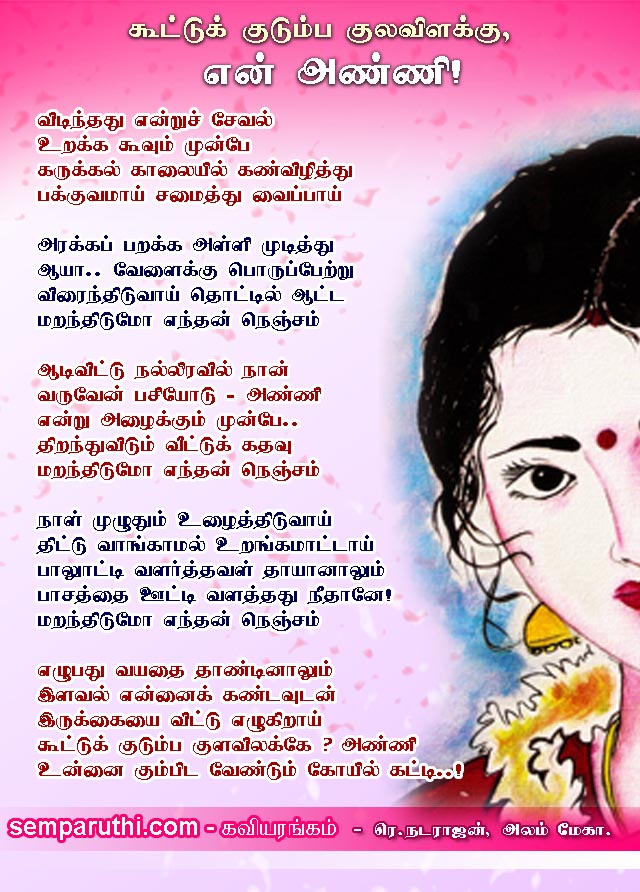 கூட்டுக் குடும்ப குலவிளக்கு,
என் அண்ணி!
விடிந்தது என்றுச் சேவல்
உறக்க கூவும் முன்பே
கருக்கல் காலையில் கண்விழித்து
பக்குவமாய் சமைத்து வைப்பாய்
அரக்கப் பறக்க அள்ளி முடித்து
ஆயா.. வேளைக்கு பொருப்பேற்று
விரைந்திடுவாய் தொட்டில் ஆட்ட
மறந்திடுமோ எந்தன் நெஞ்சம்
ஆடிவிட்டு நல்லிரவில் நான்
வருவேன் பசியோடு - அண்ணி
என்று அழைக்கும் முன்பே..
திறந்துவிடும் வீட்டுக் கதவு
மறந்திடுமோ எந்தன் நெஞ்சம்
நாள் முழுதும் உழைத்திடுவாய்
திட்டு வாங்காமல் உறங்கமாட்டாய்
பாலூட்டி வளர்த்தவள் தாயானாலும்
பாசத்தை ஊட்டி வளத்தது நீதானே!
மறந்திடுமோ எந்தன் நெஞ்சம்
எழுபது வயதை தாண்டினாலும்
இளவல் என்னைக் கண்டவுடன்
இருக்கையை விட்டு எழுகிறாய்
கூட்டுக் குடும்ப குளவிலக்கே ? அண்ணி
உன்னை கும்பிட வேண்டும் கோயில் கட்டி..!
semparuthi.com - கவியரங்கம் - ரெ.நடராஜன், அலம் மேகா.